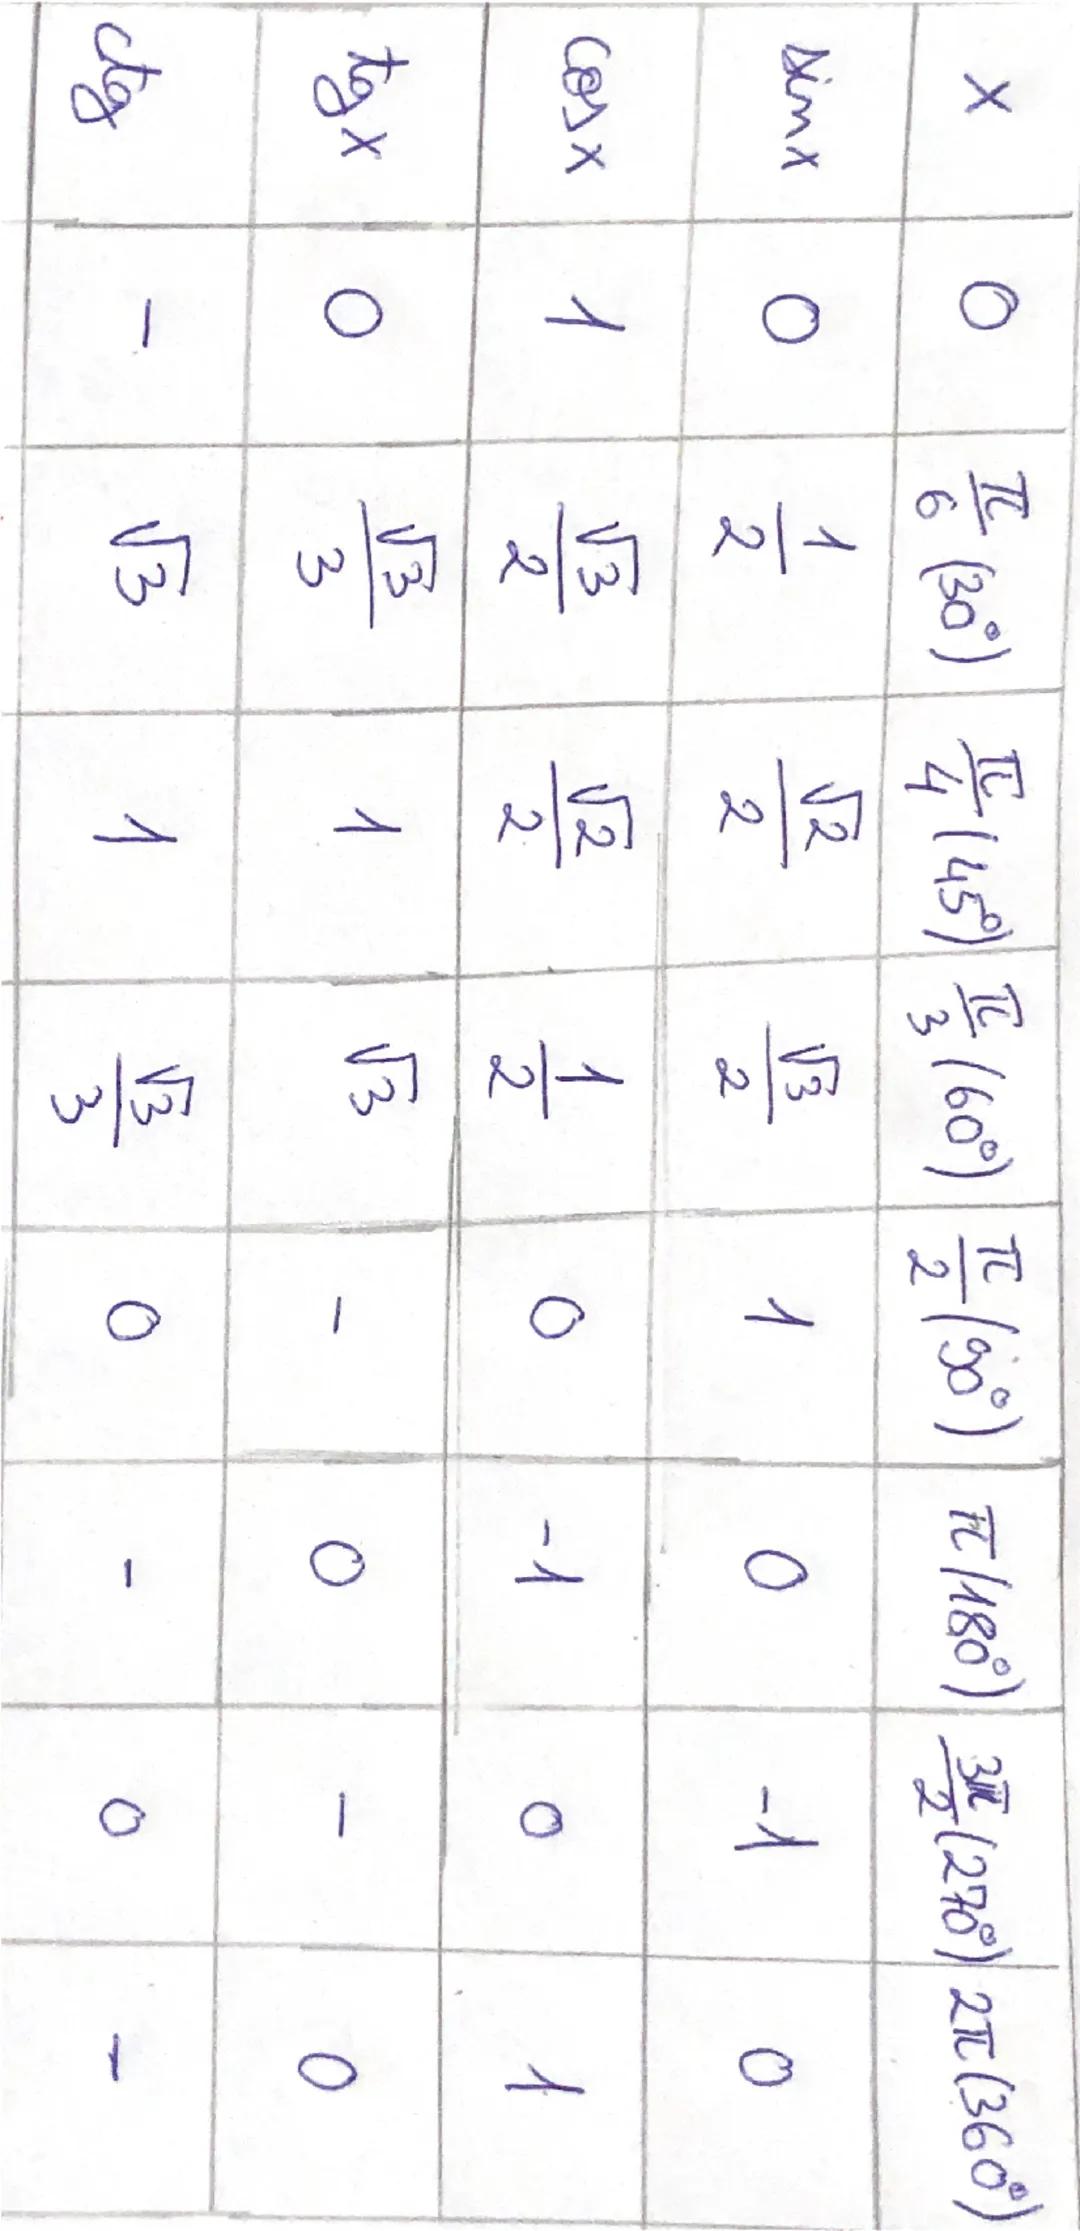 x 0 π/6 (30°) π/4 (45°) π/3 (60°) π/2 (90°) π (180°) 3π/2 (270°) 2π (360°)
sin x 0 1/2 √2/2 √3/2 1 0 -1 0
cos x 1 √3/2 √2/2 1/2 0 -1 0 1
tg x 0 √3/3 1 √3 - 0 - 0
ctg - √3 1 √3/3 0 - 0 -